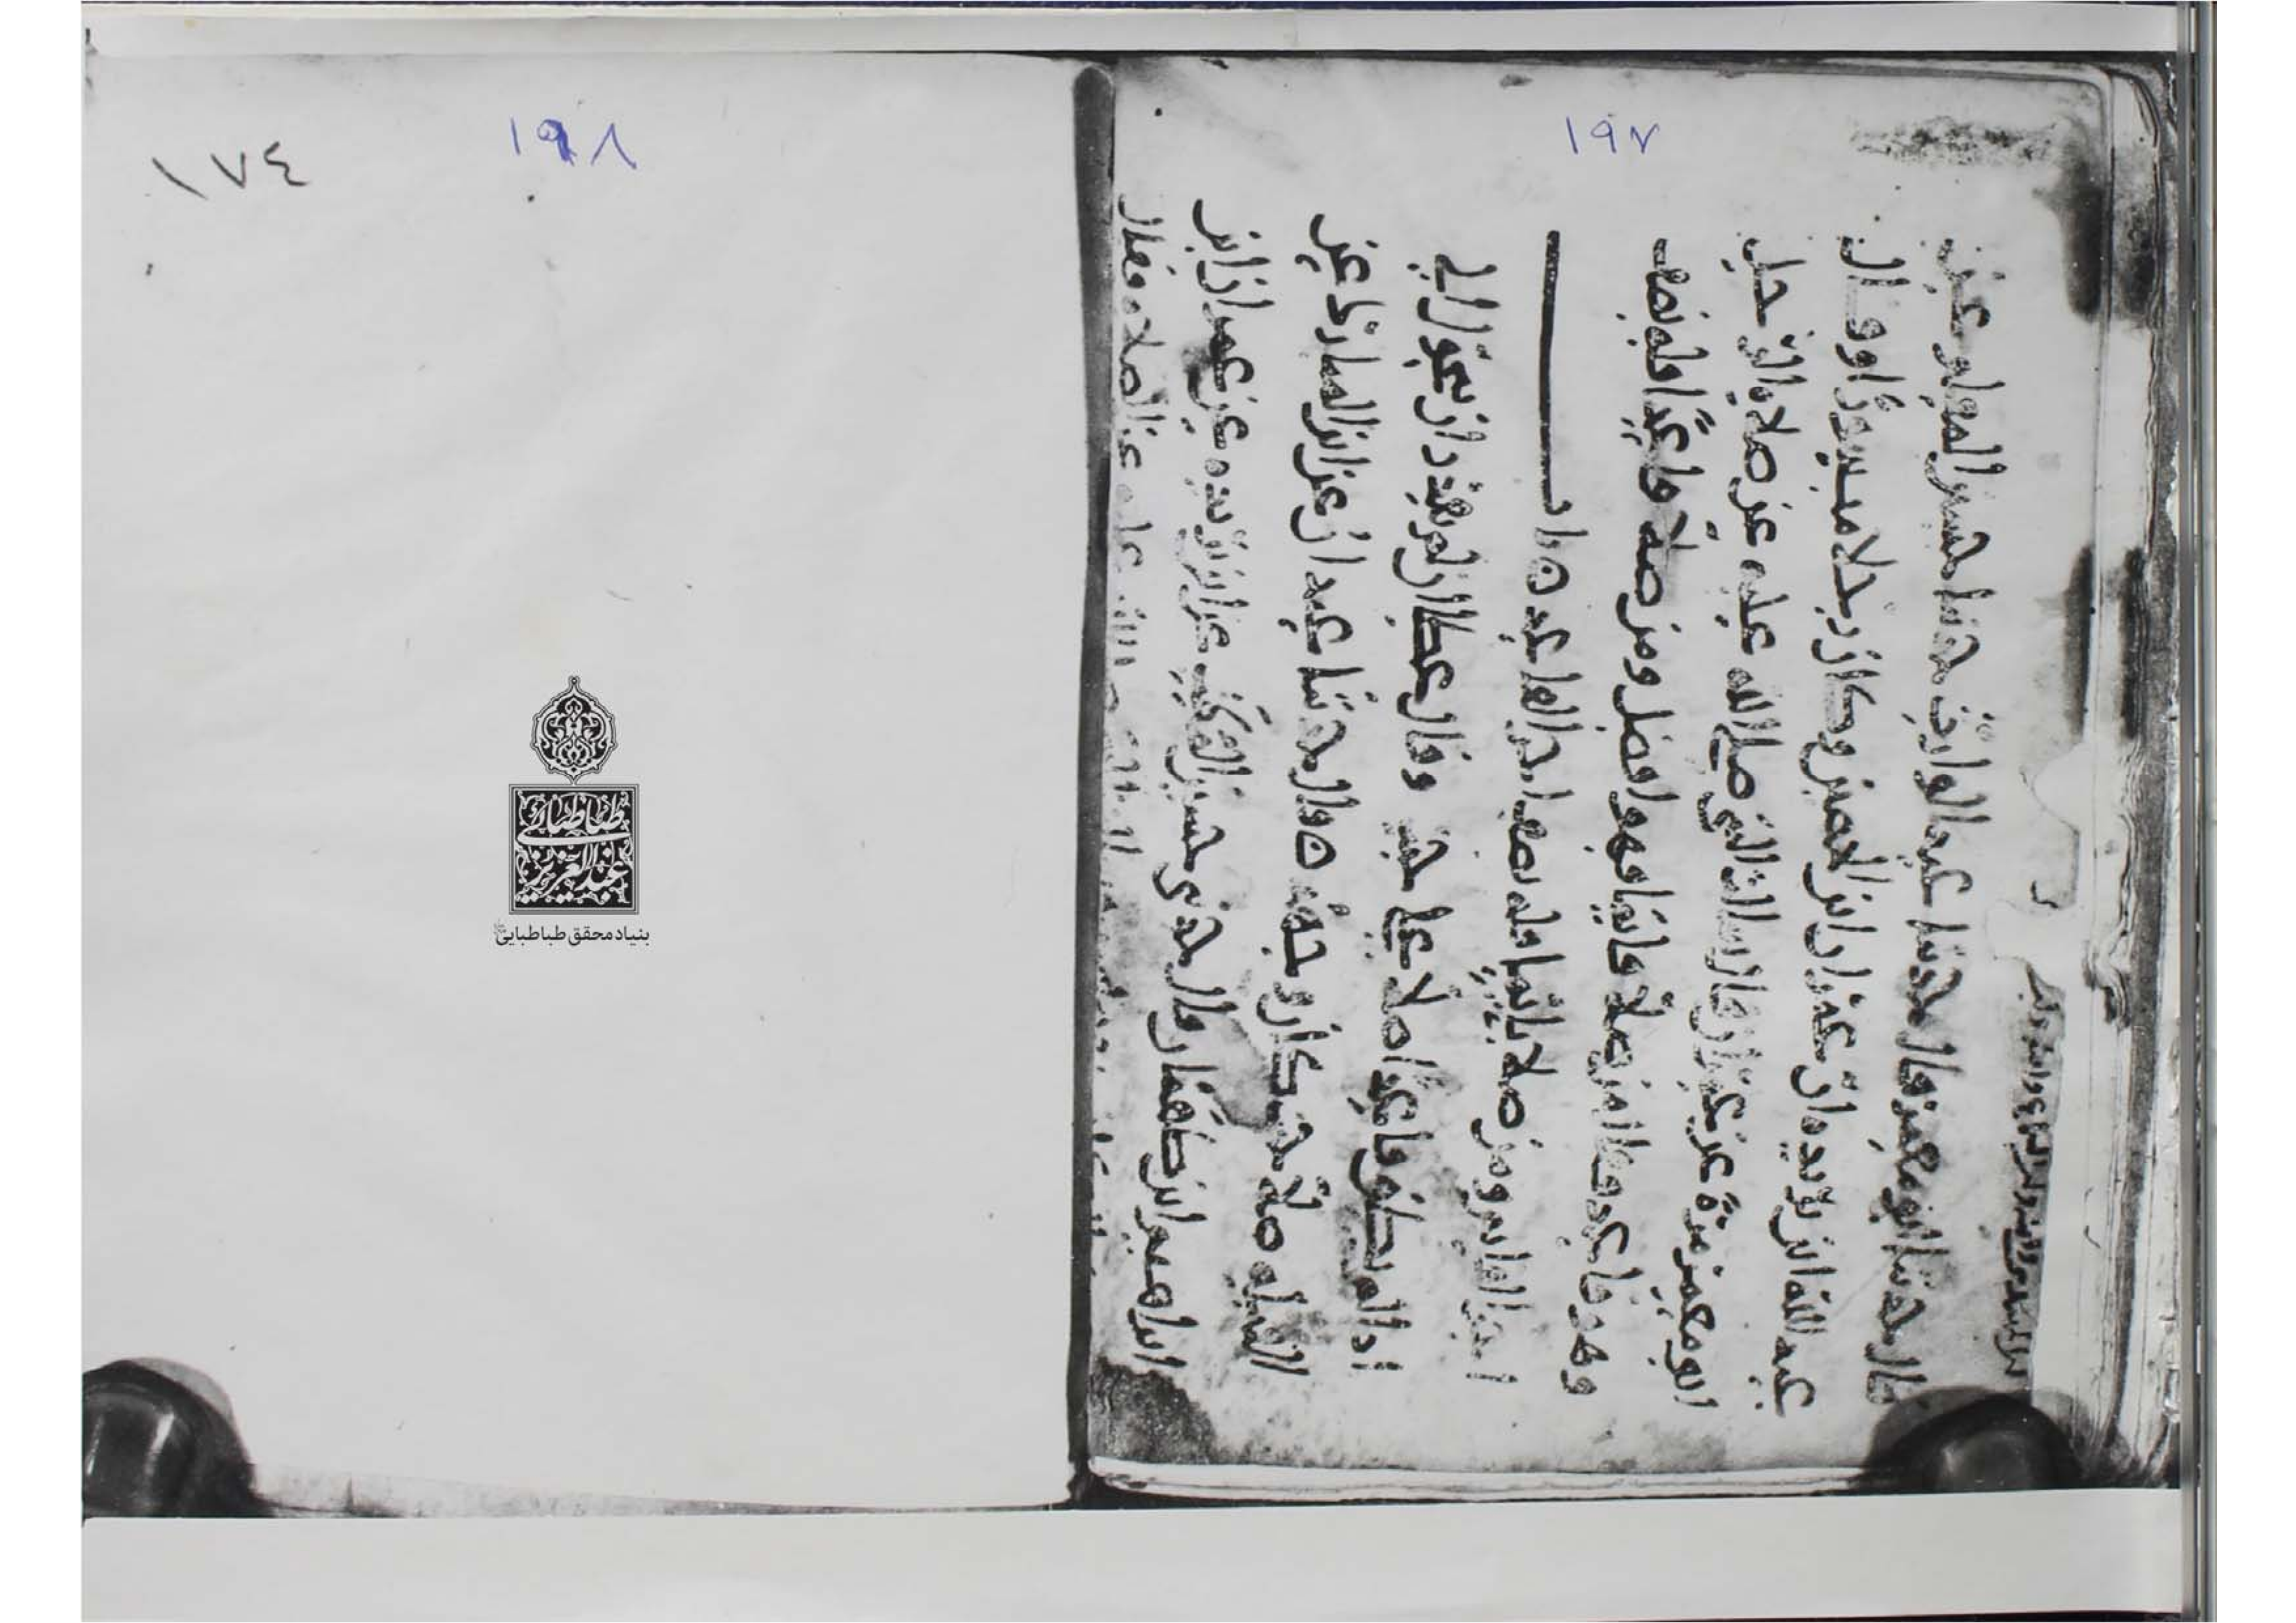 ١٩٧
قال حدثنا ابو معمر قال حدثنا عبد الوارث حدثنا حسين المعلم عن
عبد الله ابن بريده ان عمران ابن الحصين وكان رجلا مبسورا وقال
ابو معمر مرة عن عمران قال سالت النبي صلى الله عليه عن صلاة الرجل
وهو قاعد فقال من صلى قائما فهو افضل ومن صلى قاعدا فله نصف
اجر القايم ومن صلى نائما فله نصف اجر القاعد ه باب
اذا لم يطق قاعدا صلى على جنب وقال عطا ان لم يقدر ان يتحول الى
القبله صلى حيث كان وجهه ه قال حدثنا عبدان عن ابن المبارك عن
ابراهيم ابن طهمان قال حدثني حسين المكتب عن ابن بريده عن عمران ابن
عليه عن الصلاه فقال
١٩٨
١٧٤
طباطبائی
عبدالعزیز
بنیاد محقق طباطبایی